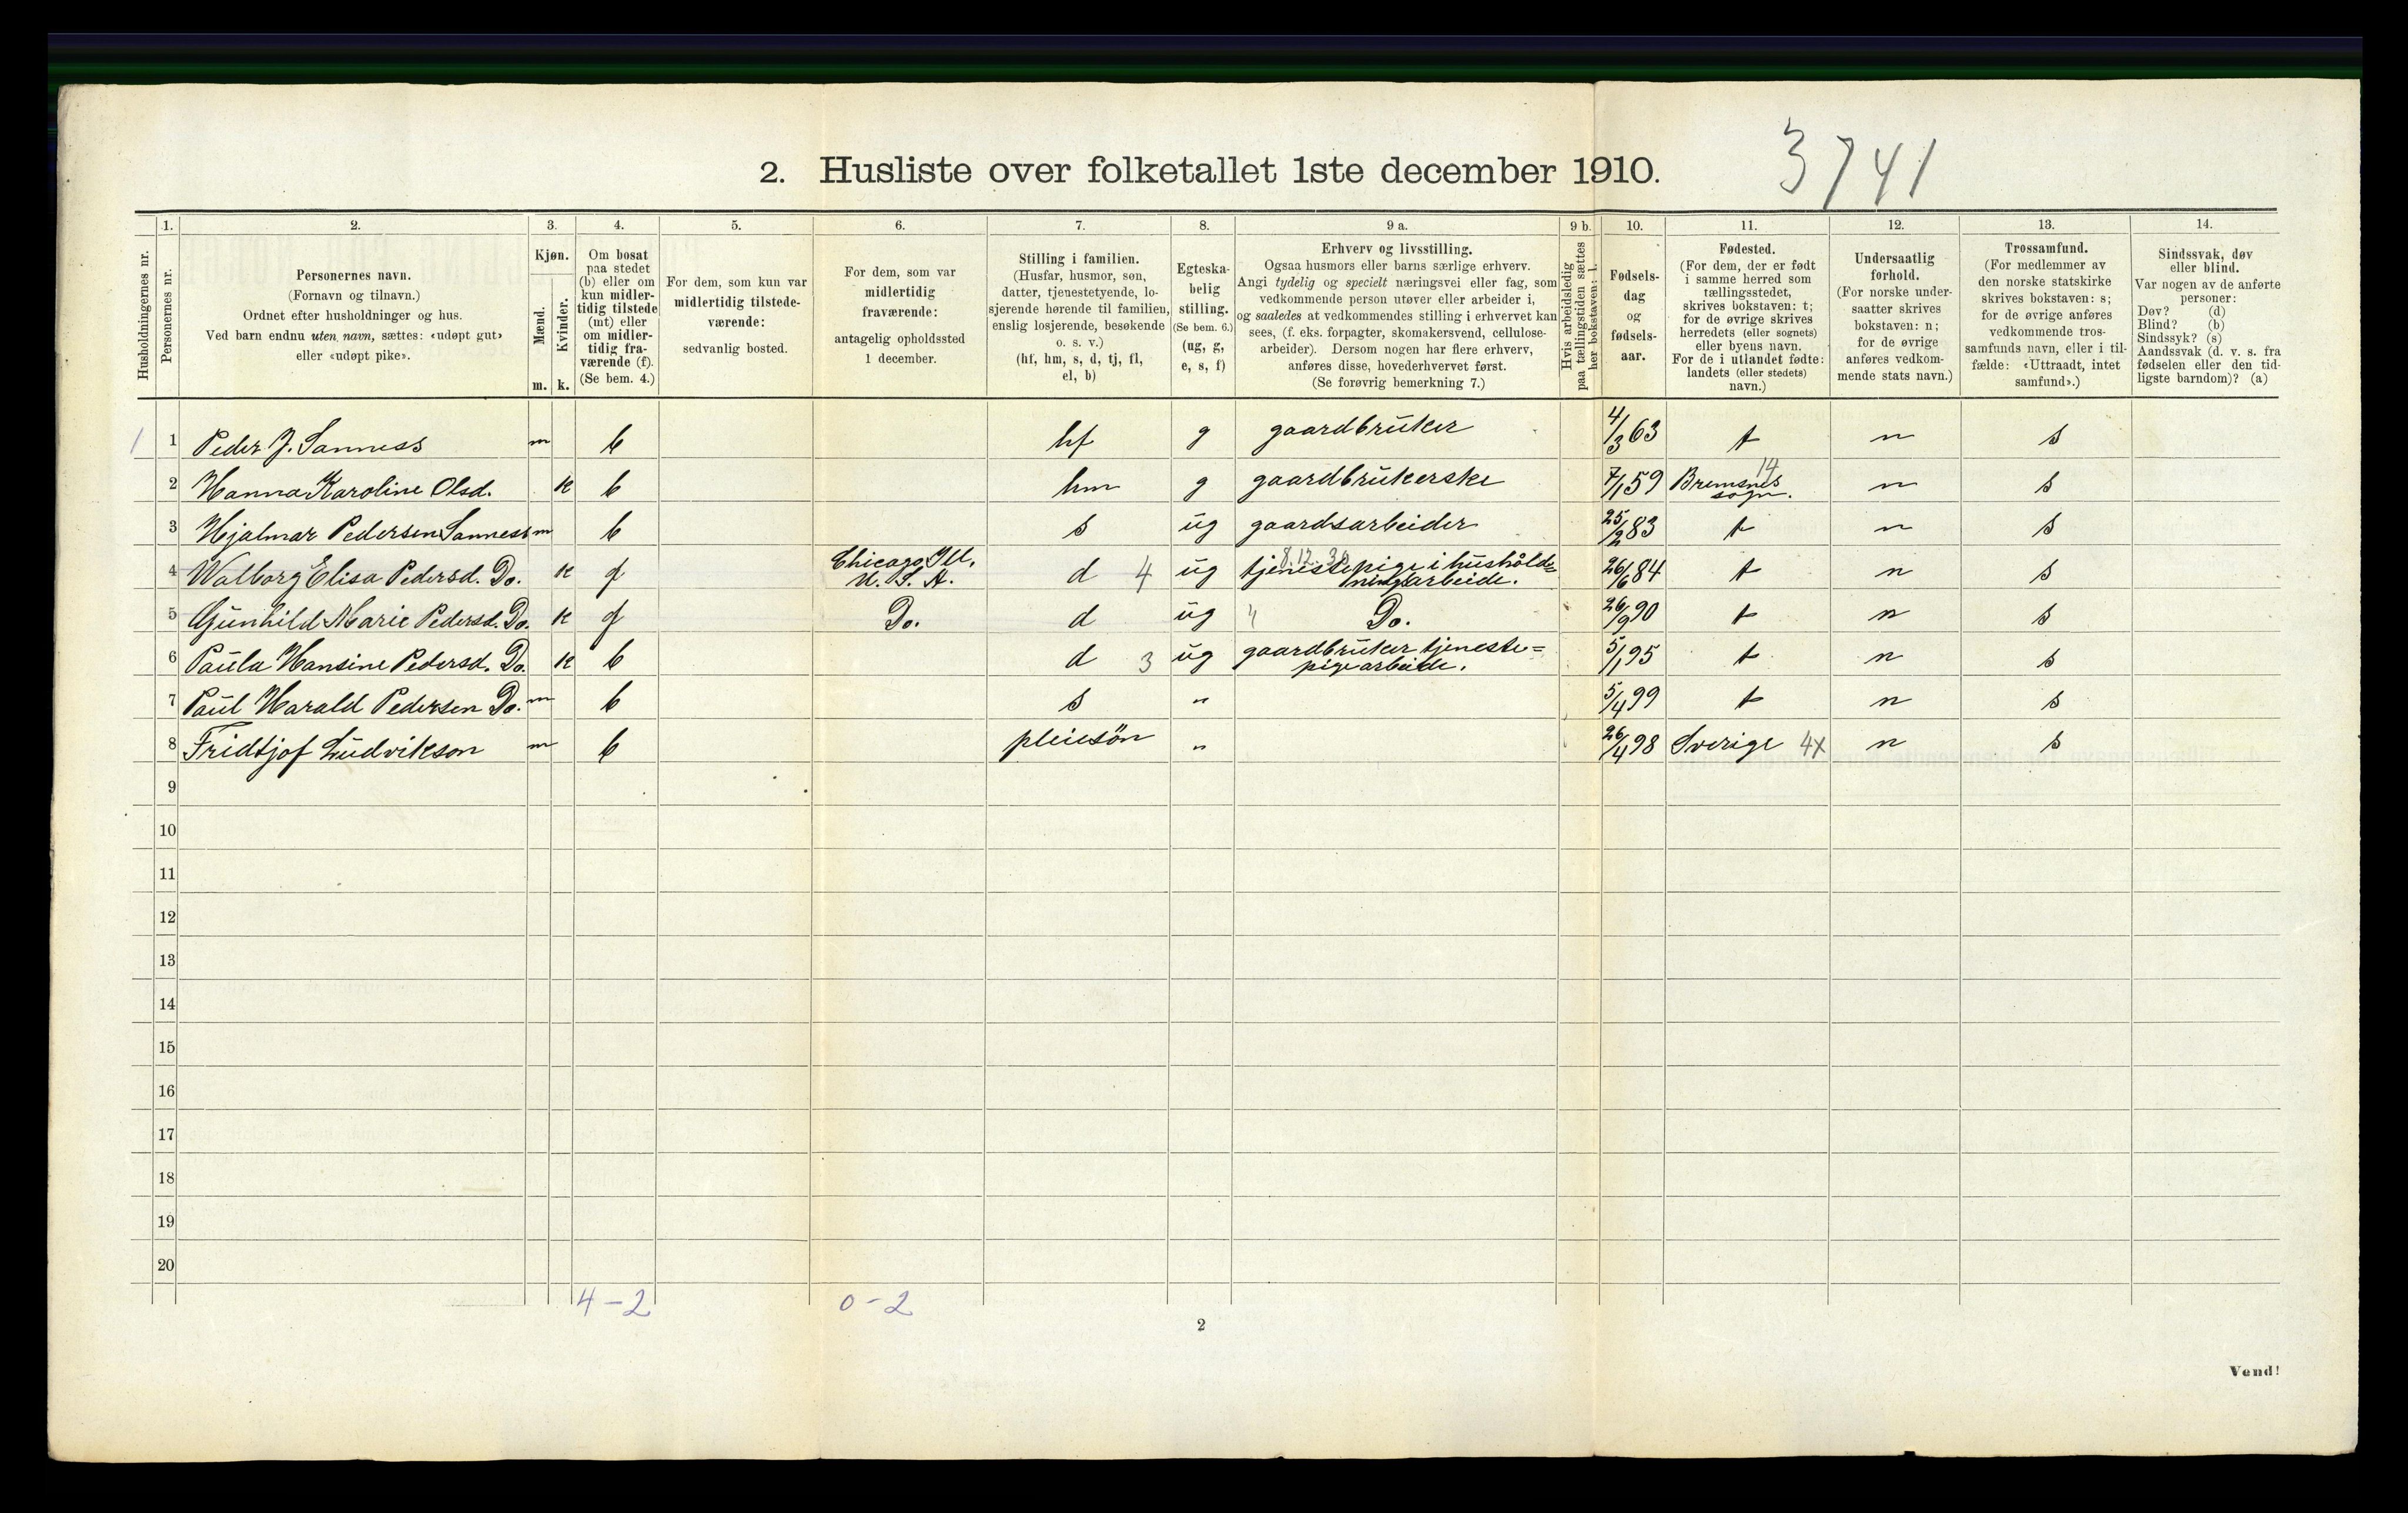 2. Husliste over folketallet 1ste december 1910.
3741
Husholdningernes nr.
1.
Personernes nr.
2.
Personernes navn.
(Fornavn og tilnavn.)
Ordnet efter husholdninger og hus.
Ved barn endnu uten navn, sættes: «udøpt gut»
eller «udøpt pike».
3.
Kjøn.
Mænd.
Kvinder.
m. k.
4.
Om bosat
paa stedet
(b) eller om
kun midler-
tidig tilstede
(mt) eller
om midler-
tidig fra-
værende (f).
(Se bem. 4.)
5.
For dem, som kun var
midlertidig tilstede-
værende:
sedvanlig bosted.
6.
For dem, som var
midlertidig
fraværende:
antagelig opholdssted
1 december.
7.
Stilling i familien.
(Husfar, husmor, søn,
datter, tjenestetyende, lo-
sjerende hørende til familien,
enslig losjerende, besøkende
o. s. v.)
(hf, hm, s, d, tj, fl,
el, b)
8.
Egteska-
belig
stilling.
(Se bem. 6.)
(ug, g,
e, s, f)
9 a.
Erhverv og livsstilling.
Ogsaa husmors eller barns særlige erhverv.
Angi tydelig og specielt næringsvei eller fag, som
vedkommende person utøver eller arbeider i,
og saaledes at vedkommendes stilling i erhvervet kan
sees, (f. eks. forpagter, skomakersvend, cellulose-
arbeider). Dersom nogen har flere erhverv,
anføres disse, hovederhvervet først.
(Se forøvrig bemerkning 7.)
9 b.
Hvis arbeidsledig
paa tællingstiden sættes
her bokstaven: l.
10.
Fødsels-
dag
og
fødsels-
aar.
11.
Fødested.
(For dem, der er født
i samme herred som
tællingsstedet,
skrives bokstaven: t;
for de øvrige skrives
herredets (eller sognets)
eller byens navn.
For de i utlandet fødte:
landets (eller stedets)
navn.)
12.
Undersaatlig
forhold.
(For norske under-
saatter skrives
bokstaven: n;
for de øvrige
anføres vedkom-
mende stats navn.)
13.
Trossamfund.
(For medlemmer av
den norske statskirke
skrives bokstaven: s;
for de øvrige anføres
vedkommende tros-
samfunds navn, eller i til-
fælde: «Uttraadt, intet
samfund».)
14.
Sindssvak, døv
eller blind.
Var nogen av de anførte
personer:
Døv? (d)
Blind? (b)
Sindssyk? (s)
Aandssvak (d. v. s. fra
fødselen eller den tid-
ligste barndom)? (a)
1 1 Peder J. Sanness m b hf g gaardbrüker 4/3 63 t n s
2 Hanna Karoline Olsd. k b hm g gaardbrükerske 7/1 59 Bremsnes sogn. 14 n s
3 Hjalmar Pedersen Sanness m b s üg gaardsarbeider 25/2 83 t n s
4 Walborg Elisa Pedersd. Do. k f Chicago Ill. U. S. A. d 4 üg tjenestepige i hüshold= ningsarbeide. 26/6 84 t n s
5 Günhild Marie Pedersd. Do. k f Do. d üg " Do. 26/9 90 t n s
6 Paüla Hansine Pedersd. Do. k b d 3 üg gaardbrüker tjeneste= pigearbeide. 5/1 95 t n s
7 Paül Harald Pedersen Do. m b s " 5/4 99 t n s
8 Fridtjof Lüdvikson m b pleiesön " 26/4 98 Sverige 4x n s
9
10
11
12
13
14
15
16
17
18
19
20
4 - 2
0 - 2
2
Vend!